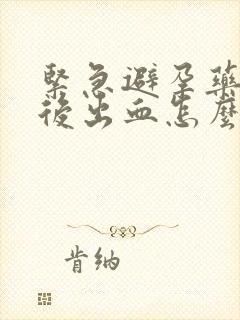 緊急避孕藥
後出血怎麼
肯納